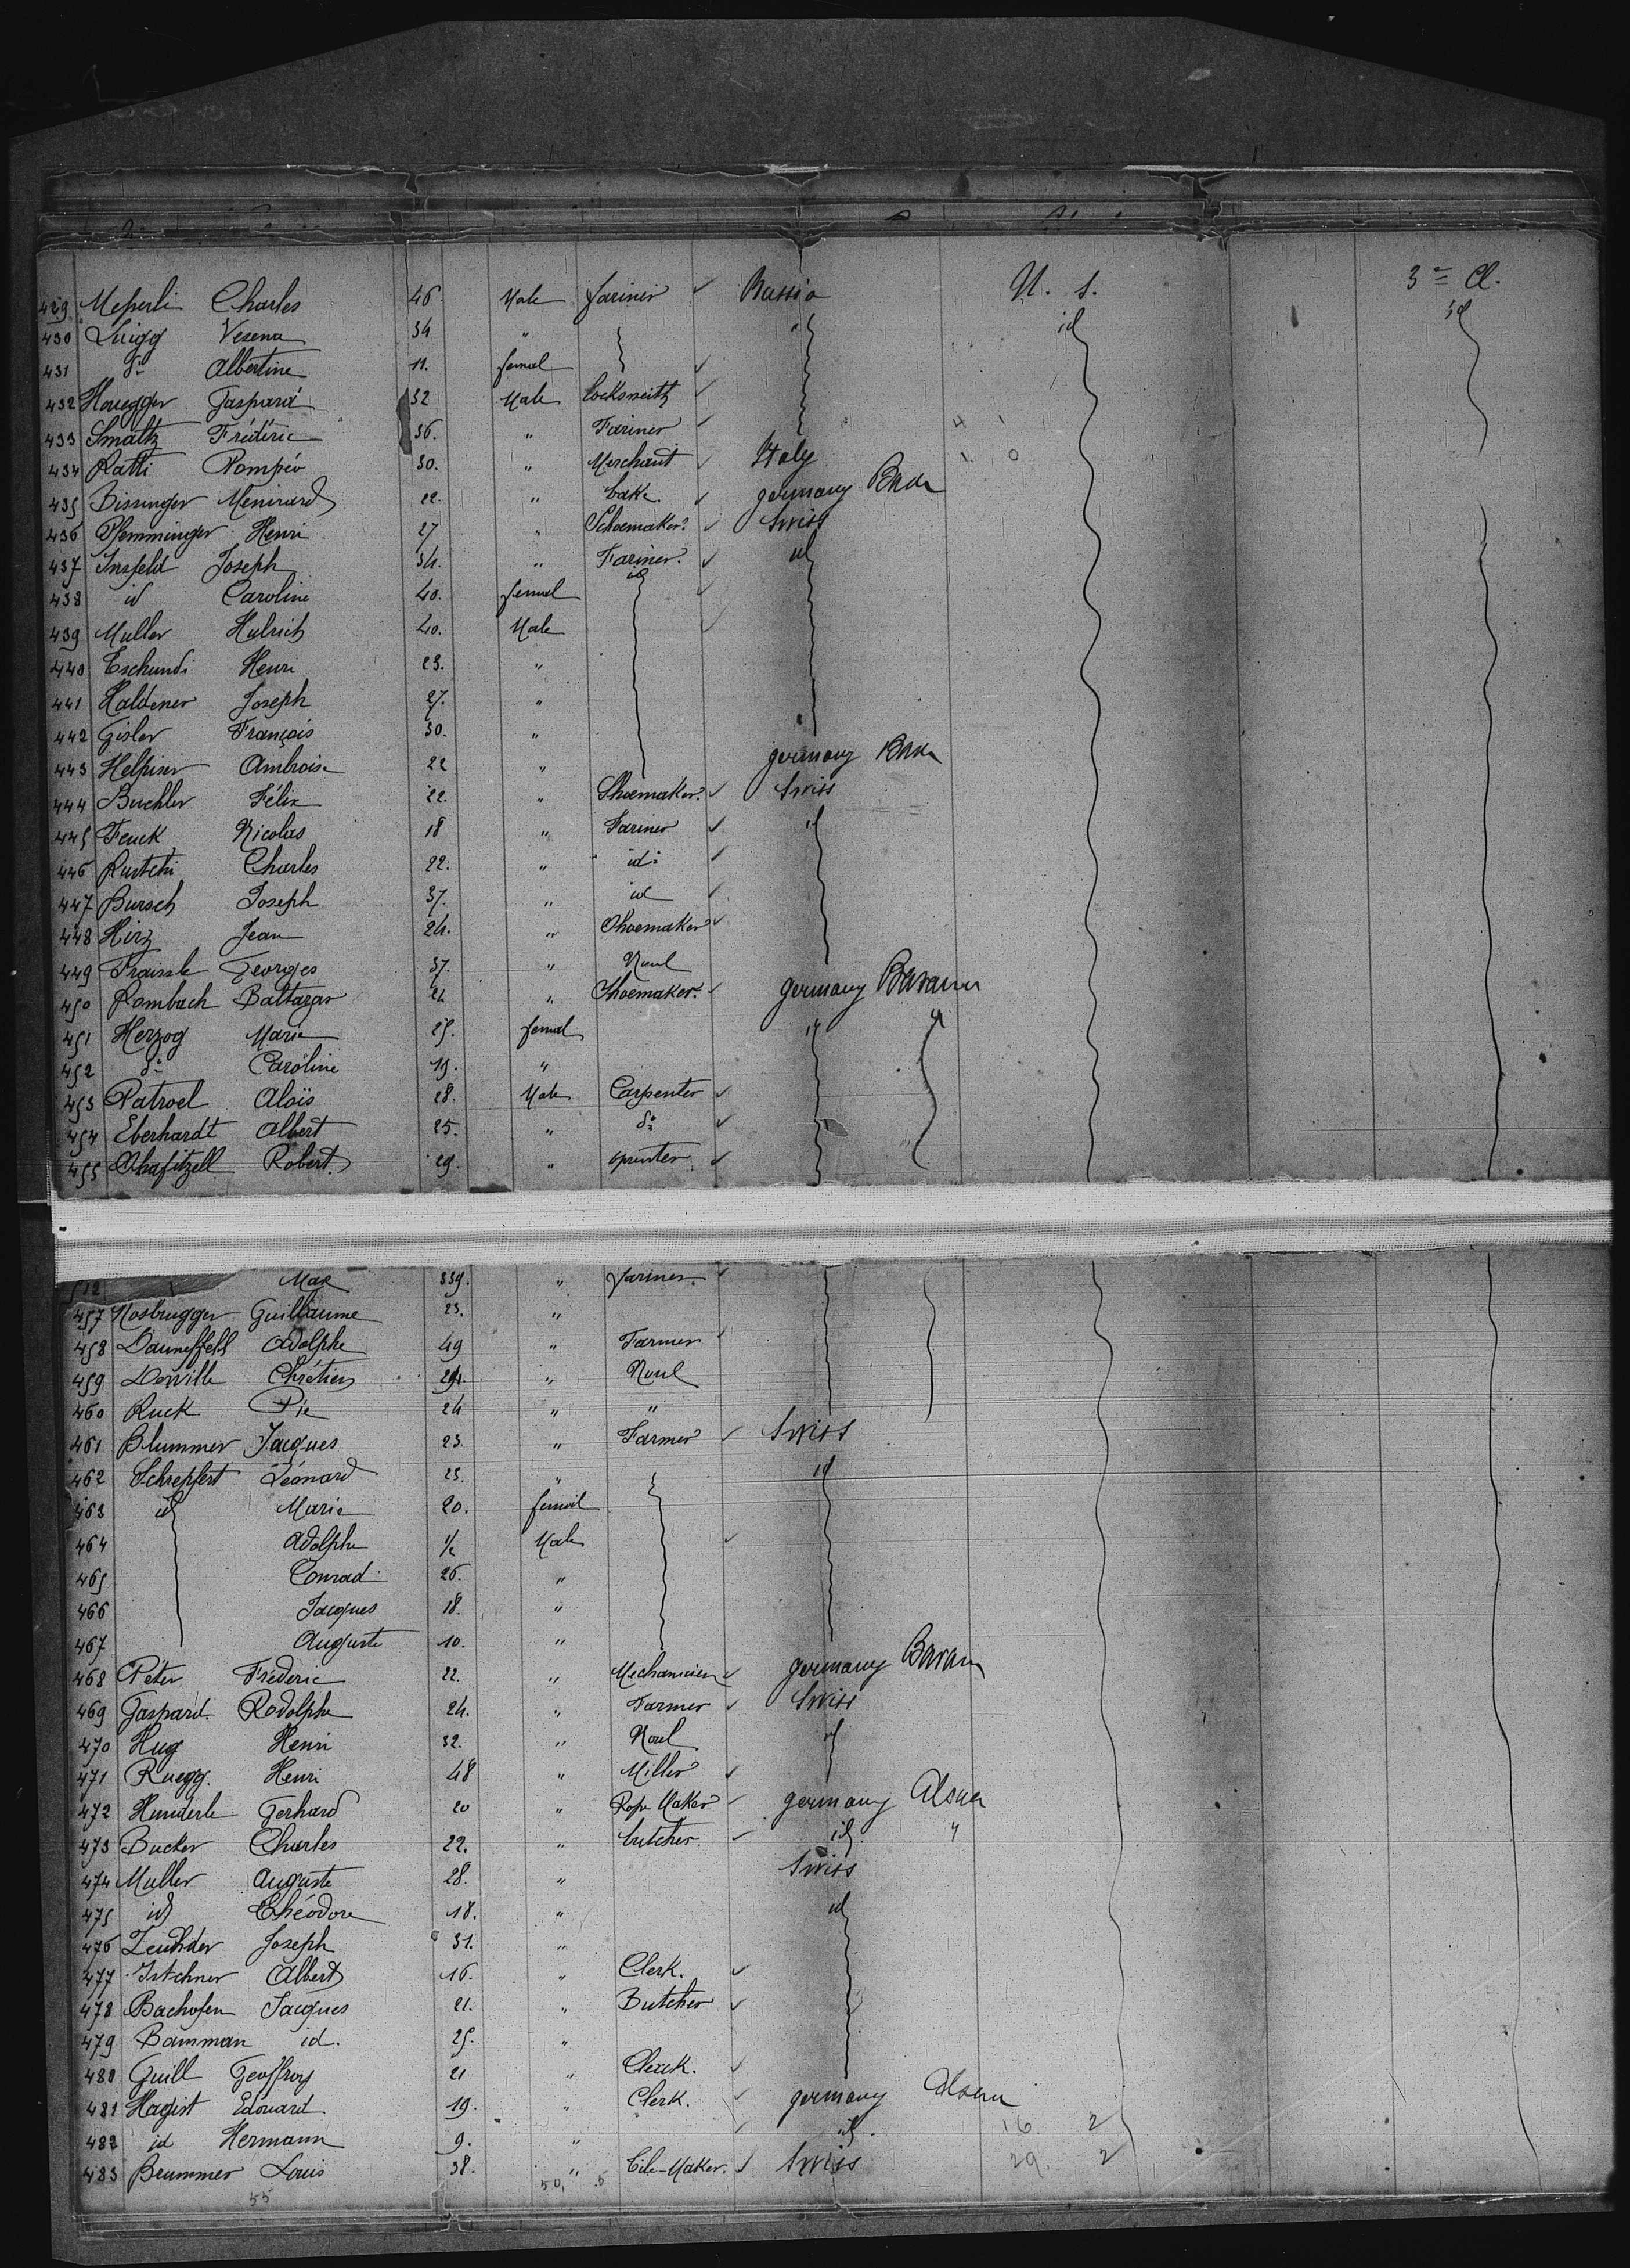 429 Meperli Charles 46 Male farmer ✓ Russia U. S. 3e Cl.
430 Luigg Vesena 34 " id id
431 do Albertine 11. femal ✓
432 Honegger Gaspard 32 Male locksmith ✓
433 Smaltz Frédéric 36. " Farmer ✓
434 Ratti Pompéo 30. " Merchant ✓ Italy
435 Bissinger Meinrard 22. " bake. ✓ germany Bade
436 Plemminger Henri 27 " Schoemaker. ✓ Swiss
437 Insfeld Joseph 34. " Farmer. ✓ id
438 id Caroline 40. femal id ✓
439 Muller Hulrich 40. Male ✓
440 Eschundi Henri 23. "
441 Haldener Joseph 27. "
442 Gisler François 30. "
443 Helpiser Ambroise 22 " germany Bade
444 Buchler Félix 22. " Shoemaker. ✓ Swiss
445 Feuck Nicolas 18 " Farmer ✓ id
446 Rustchi Charles 22. " id ✓
447 Bursch Joseph 37. " id ✓
448 Hirz Jean 24. " Shoemaker ✓
449 Fraissle Georges 37. " Noul
450 Rombach Baltazar 24 " Shoemaker. ✓ germany Bavaria
451 Herzog Marie 25. femal id id
452 do Caroline 19. "
453 Patroel Aloïs 28. Male Carpenter ✓
454 Eberhardt Albert 25. " do ✓
455 Shafitzell Robert. 29. " sprinter ✓
512 Max 39. " farmer. ✓
457 Nosbrugger Guillaume 23. "
458 Dauneffell Adolphe 49 " Farmer ✓
459 Derville Chrétien 24. " Noul
460 Ruck Pie 24 " "
461 Blummer Jacques 23. " Farmer ✓ Swiss
462 Schrepfert Léonard 23. " id
463 id Marie 20. femal
464 Adolphe 1/2 Male ✓
465 Conrad 26. "
466 Jacques 18. "
467 Auguste 10. "
468 Péter Fréderic 22. " Mechanicien ✓ germany Bavaria
469 Gaspard. Rodolphe 24. " Farmer ✓ Swiss
470 Hug Henri 32. " Noul id
471 Ruegg. Henri 48 " Miller ✓
472 Hunderle Gerhard 20 " Rope Maker ✓ germany Alsace
473 Bucker Charles 22. " butcher. ✓ id. "
474 Muller Auguste 28. " Swiss
475 id Théodore 18. " id
476 Zeuhder Joseph 31. "
477 Istchner Albert 16. " Clerk. ✓
478 Bachofen Jacques 21. " Butcher ✓
479 Bamman id. 25. "
480 Guill Geoffroy 21 " Clerk. ✓
481 Hagist Edouard 19. " Clerk. ✓ germany Alsace
482 id Hermann 9. " ✓ id. 16. 2
483 Brummer Louis 38. " Tile-Maker. ✓ Swiss 29. 2
55 50, 5